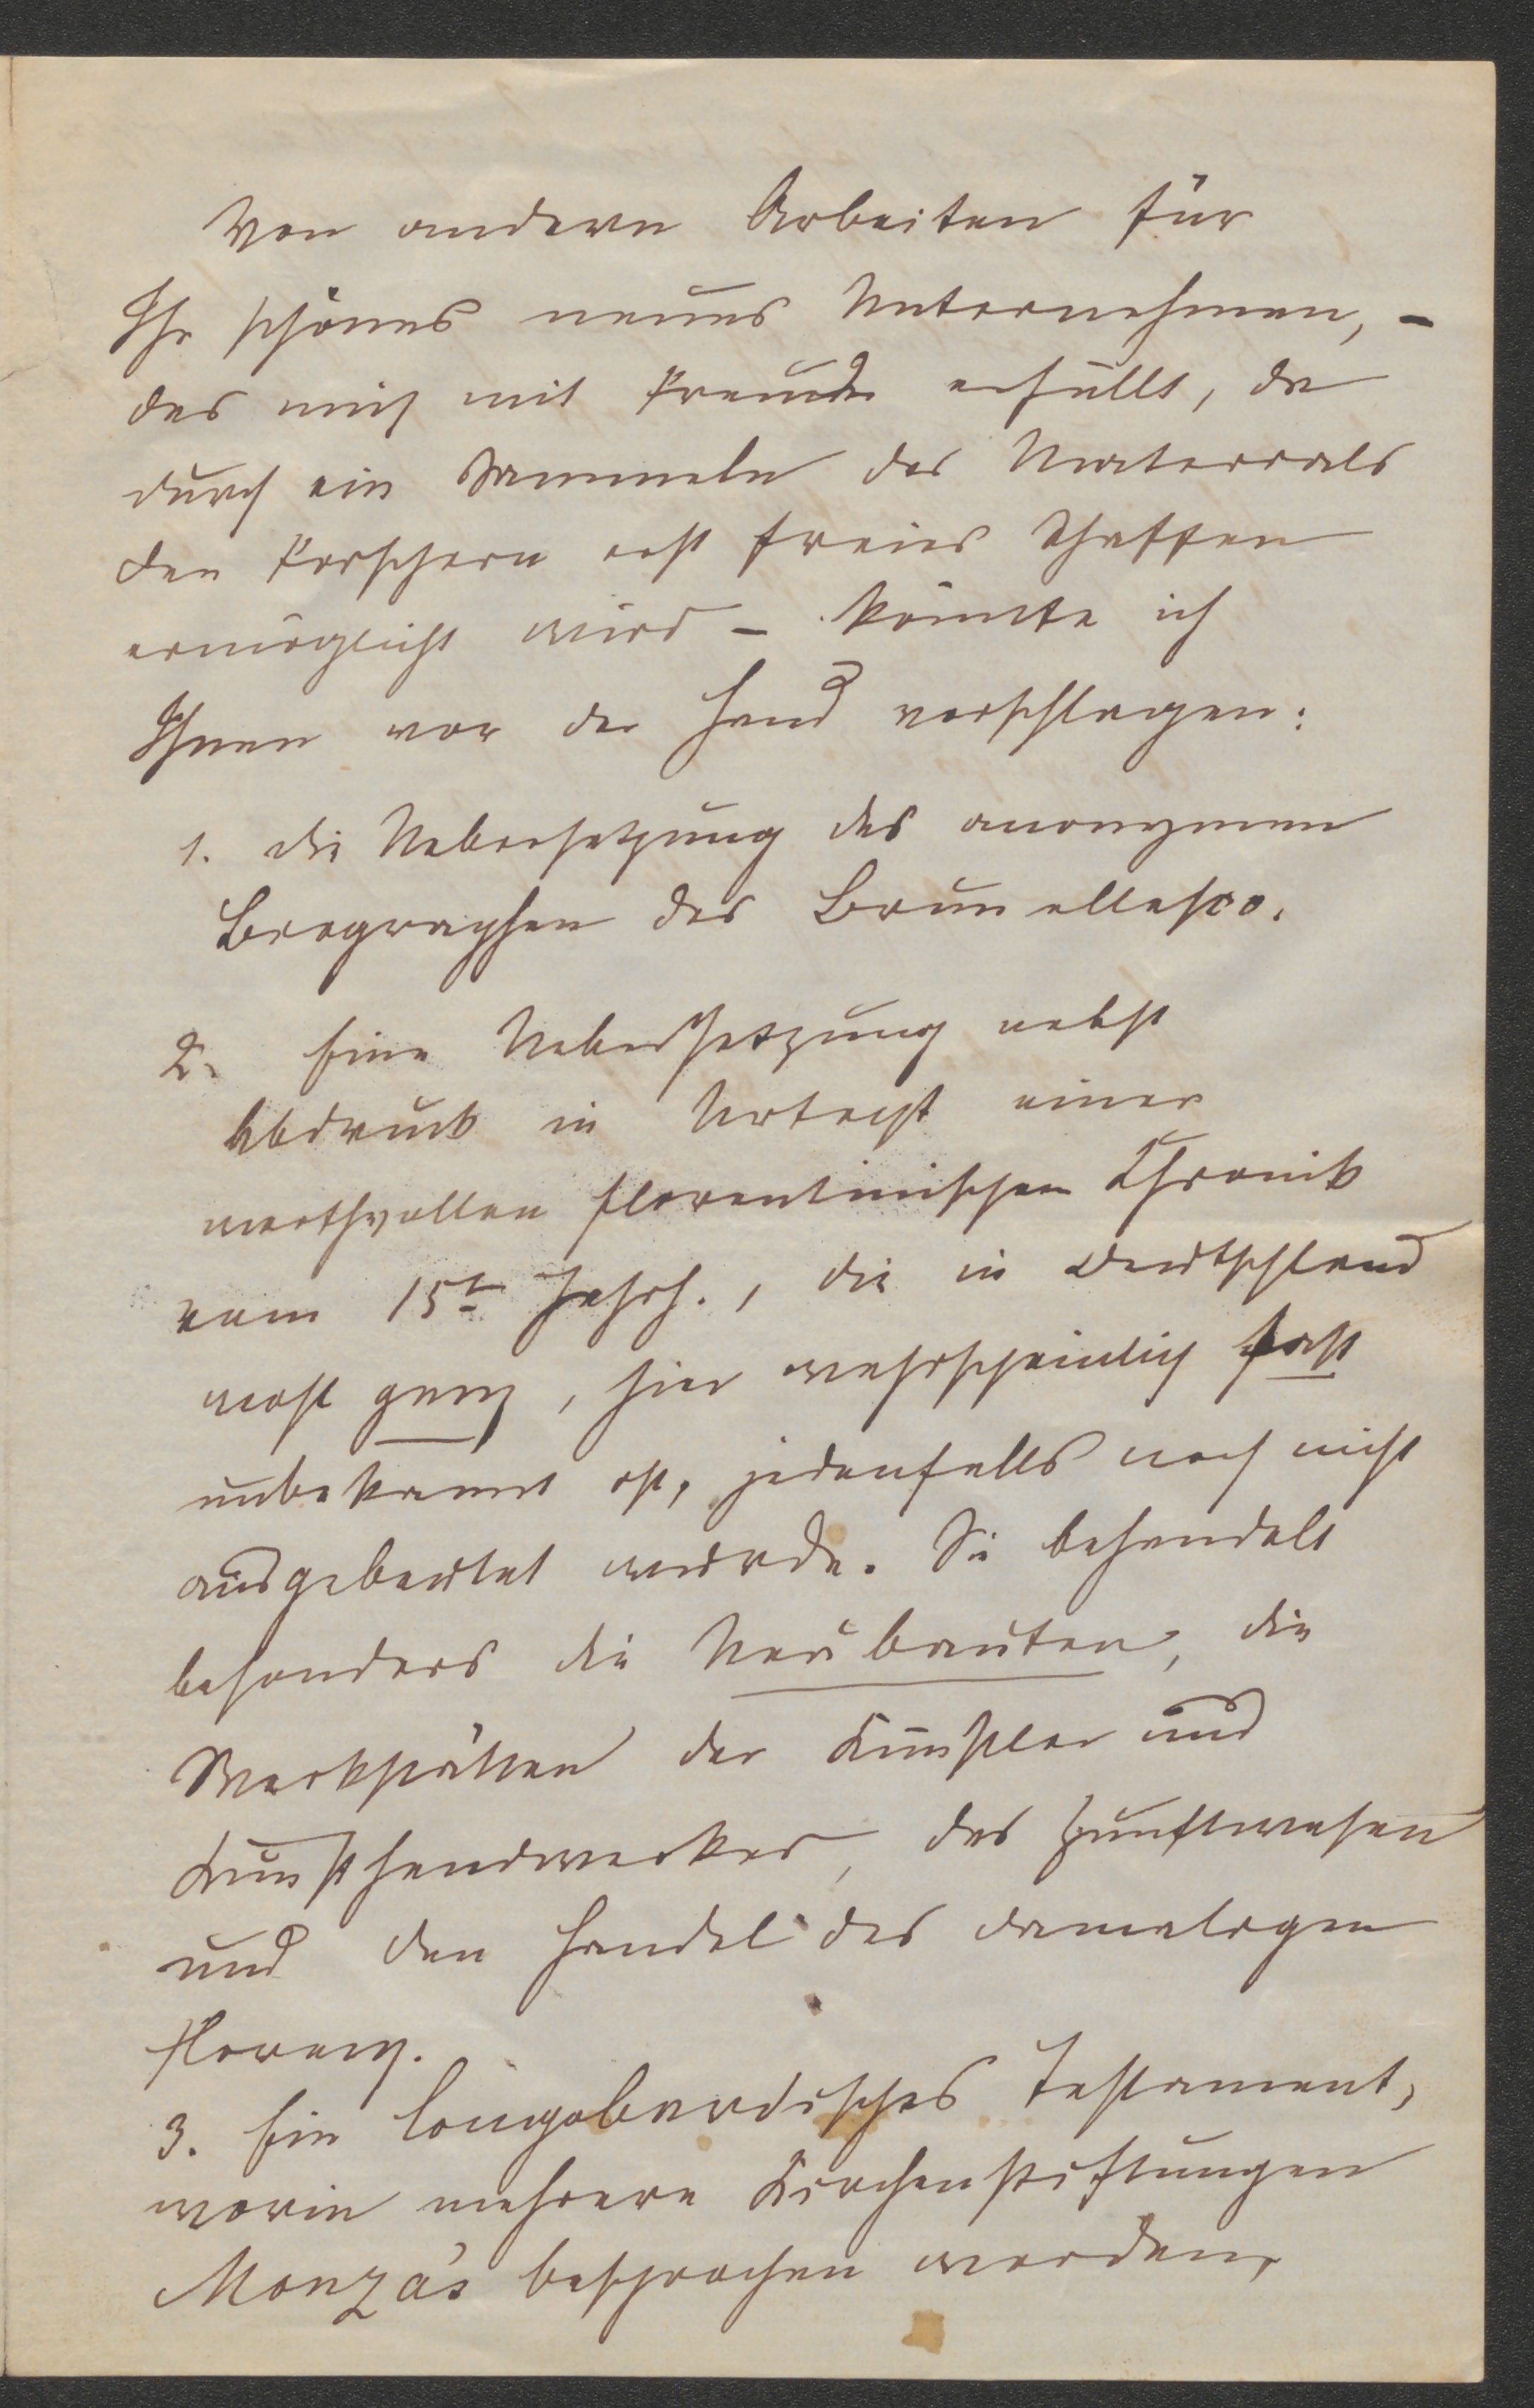 Von andern Arbeiten für
Ihr schönes neues Unternehmen, –
das mich mit Freude erfüllt, da
durch ein Sammeln des Materials
den Forschern erst freies Schaffen
ermöglicht wird – könnte ich
Ihnen vor der Hand vorschlagen:
1. die Uebersetzung des anonymen
Biographen des Brunellesco.
2. Eine Uebersetzung nebst
Abdruck in Urtext einer
werthvollen florentinischen Chronik
vom 15t Jahrh., die in Deutschland
wohl ganz, hier wahrscheinlich fast
unbekannt ist, jedenfalls noch nicht
ausgebeutet wurde. Sie behandelt
besonders die Neubauten, die
Werkstätten der Künstler und
Kunsthandwerker, das Zunftwesen
und den Handel des damaligen
Florenz.
3. Ein longobardisches Testament,
worin mehrere Kirchenstiftungen
Monza's besprochen werden,